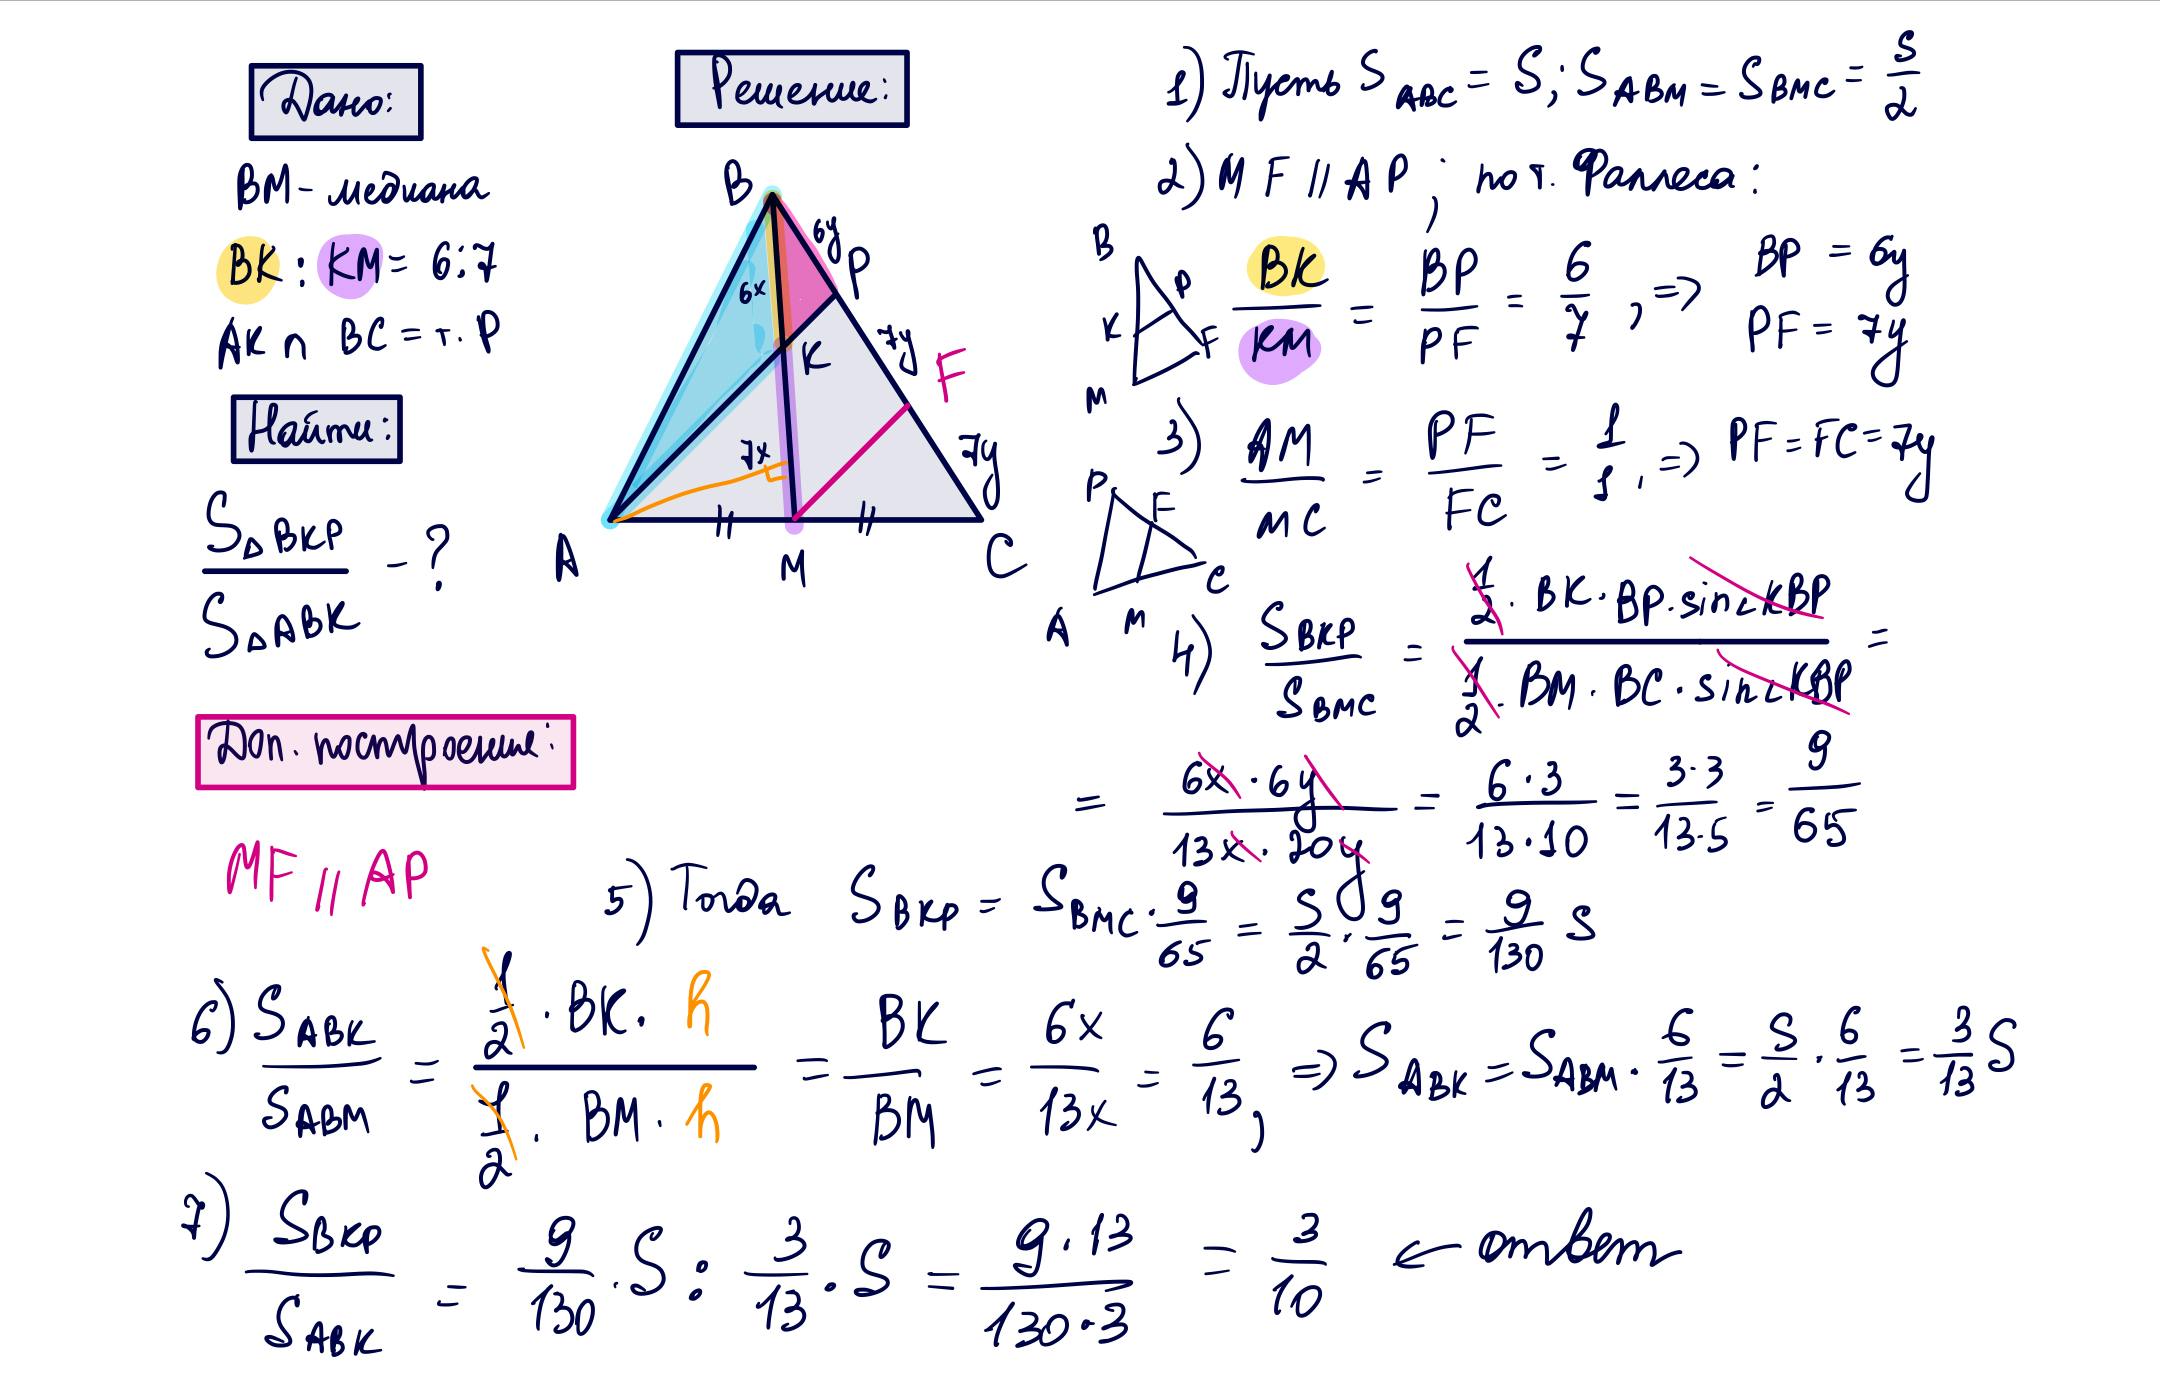 Дано:
BM - медиана
BK : KM = 6:7
AK ∩ BC = т. P
Найти:
S△BKP / S△ABK - ?
Доп. построение:
MF // AP
Решение:
B
6y
P
6x
K
7y
F
7x
7y
A
M
C
1) Пусть S ABC = S; S ABM = S BMC = S/2
2) MF // AP ; по т. Фаллеса:
B
K
P
F
M
BK/KM = BP/PF = 6/7 , => BP = 6y
PF = 7y
3) AM/MC = PF/FC = 1/1 , => PF = FC = 7y
P
F
C
A
M
4) S BKP / S BMC = 1/2 · BK · BP · sin∠KBP / 1/2 · BM · BC · sin∠KBP =
= 6x · 6y / 13x · 20y = 6·3 / 13·10 = 3·3 / 13·5 = 9/65
5) Тогда S BKP = S BMC · 9/65 = S/2 · 9/65 = 9/130 S
6) S ABK / S ABM = 1/2 · BK · h / 1/2 · BM · h = BK/BM = 6x/13x = 6/13 , => S ABK = S ABM · 6/13 = S/2 · 6/13 = 3/13 S
7) S BKP / S ABK = 9/130 · S : 3/13 · S = 9·13 / 130·3 = 3/10 ← ответ